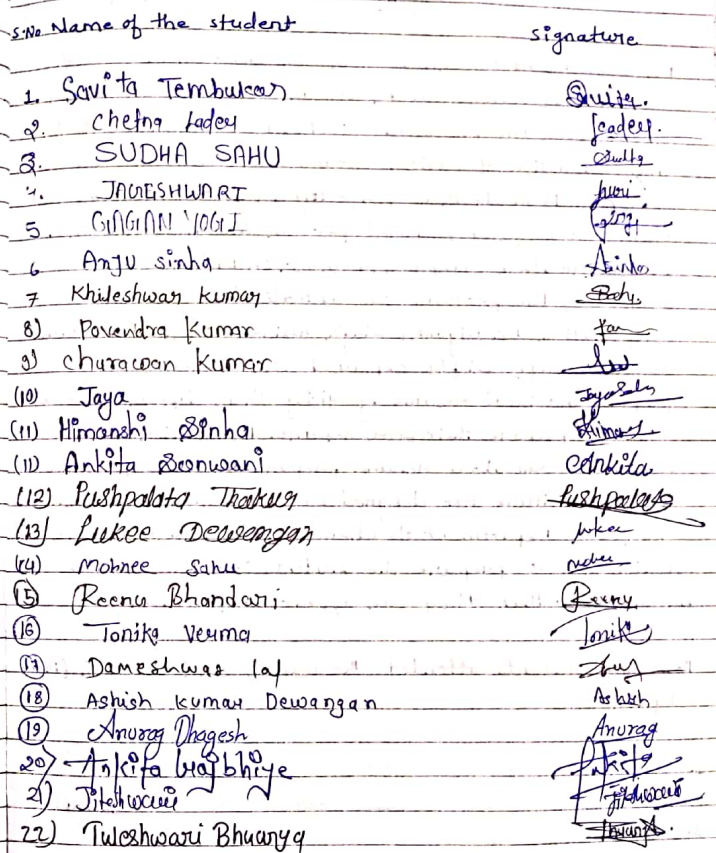 S.No Name of the student signature
1. Savita Tembukar Savita.
2. Chetna Ladey Leadey.
3. SUDHA SAHU Sudha
4. JAGESHWARI
5. GAGAN YOGI
6 Anju sinha Asinha
7 Khileshwar Kumar
8) Povendra Kumar
9) Churawan Kumar
(10) Jaya JayaSahu
(11) Himanshi Sinha Himanshi
(11) Ankita Sonwani Ankita
(12) Pushpalata Thakur Pushpalata
(13) Lukee Dewengan Lukee
(14) Mohnee Sahu
15 Reena Bhandari Reeny
16 Tonika Verma Tonika
17 Dameshwar lal
18 Ashish Kumar Dewangan Ashish
19 Anurag Dhagesh Anurag
20) Ankita Rajbhiye Ankita
21) Jiteshwari Jiteshwari
22) Tuleshwari Bhuarya Bhuarya.